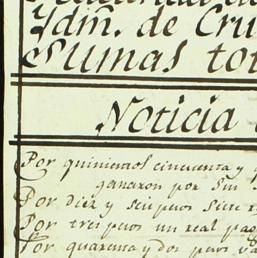 Ydm. de Cru
Sumas tot
Noticia
Por quinientos cincuenta y
ganaron por su
Por diez y seis pesos siete r
Por tres pesos un real pag
Por quarenta y dos pesos